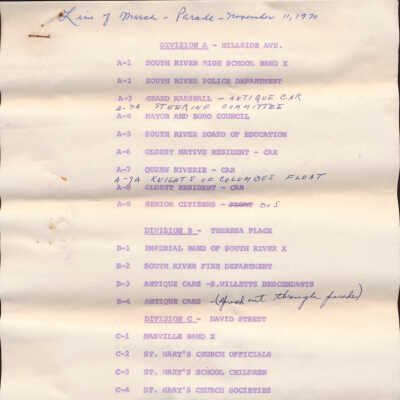 Line of March - Parade - November 11, 1970
DIVISION A - HILLSIDE AVE.
A-1 SOUTH RIVER HIGH SCHOOL BAND X
A-2 SOUTH RIVER POLICE DEPARTMENT
A-3 GRAND MARSHALL - ANTIQUE CAR
A-3A STEERING COMMITTEE
A-4 MAYOR AND BORO COUNCIL
A-5 SOUTH RIVER BOARD OF EDUCATION
A-6 OLDEST NATIVE RESIDENT - CAR
A-7 QUEEN RIVERIE - CAR
A-7A KNIGHTS OF COLUMBUS FLOAT
A-8 OLDEST RESIDENT - CAR
A-9 SENIOR CITIZENS - FLOAT BUS
DIVISION B - THERESA PLACE
B-1 IMPERIAL BAND OF SOUTH RIVER X
B-2 SOUTH RIVER FIRE DEPARTMENT
B-3 ANTIQUE CARS -S.WILLETTS DESCENDANTS
B-4 ANTIQUE CARS - (Spread out through parade)
DIVISION C - DAVID STREET
C-1 SAYVILLE BAND X
C-2 ST. MARY'S CHURCH OFFICIALS
C-3 ST. MARY'S SCHOOL CHILDREN
C-4 ST. MARY'S CHURCH SOCIETIES